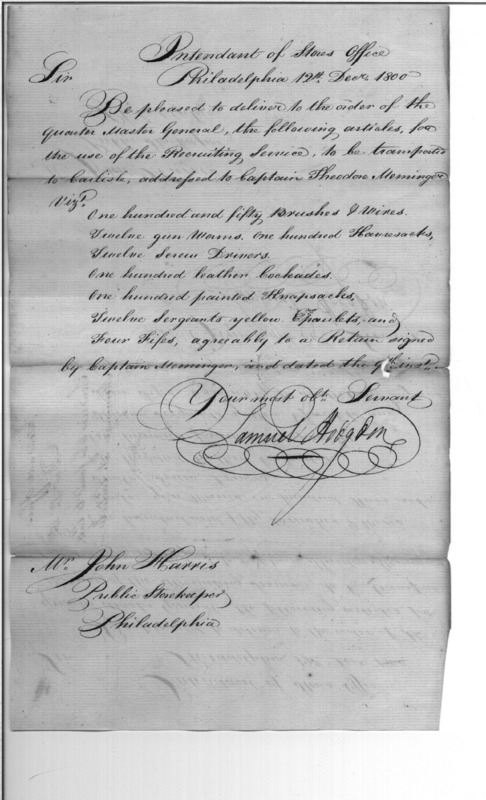 Intendant of Stores Office
Sir Philadelphia 12th. Decr. 1800
Be pleased to deliver to the order of the
Quarter Master General, the following articles, for
the use of the Recruiting Service, to be transported
to Carlisle, addressed to Captain Theodore Meminger
Vizt.
One hundred and fifty Brushes & Wires.
Twelve gun Worms. One hundred Haversacks,
Twelve Screw Drivers.
One hundred leather Cockades.
One hundred painted Knapsacks,
Twelve Sergeants yellow Epaulets, and
Four Fifes, agreably to a Return signed
by Captain Meminger, and dated the 9th. inst.
Your most obt. Servant
Samuel Hodgdon
Mr. John Harris
Public Storekeeper
Philadelphia